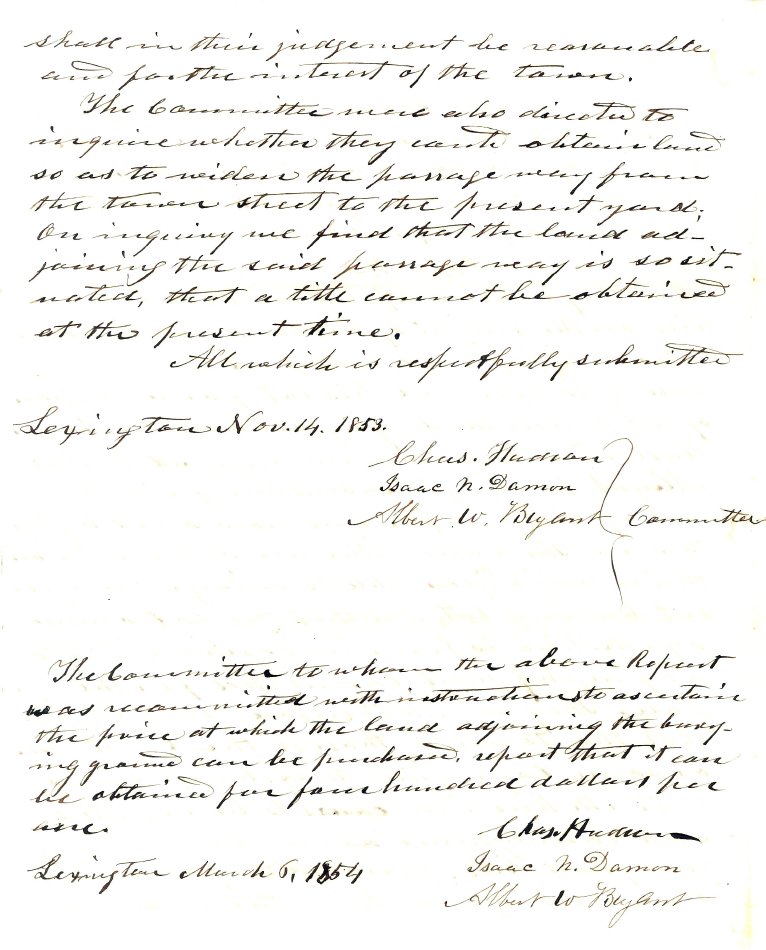 shall in their judgement be reasonable
and for the interest of the town.
The Committee were also directed to
inquire whether they could obtain land
so as to widen the passage way from
the town street to the present yard.
On inquiry we find that the land ad-
joining the said passage way is so sit-
uated, that a title cannot be obtained
at the present time.
All which is respectfully submitted
Lexington Nov. 14. 1853.
Chas. Hudson
Isaac N. Damon
Albert W. Bryant Committee
The Committee to whom the above Report
was recommitted with instructions to ascertain
the price at which the land adjoining the bury-
ing ground can be purchased, report that it can
be obtained for four hundred dollars per
acre.
Chas. Hudson
Lexington March 6, 1854
Isaac N. Damon
Albert W Bryant